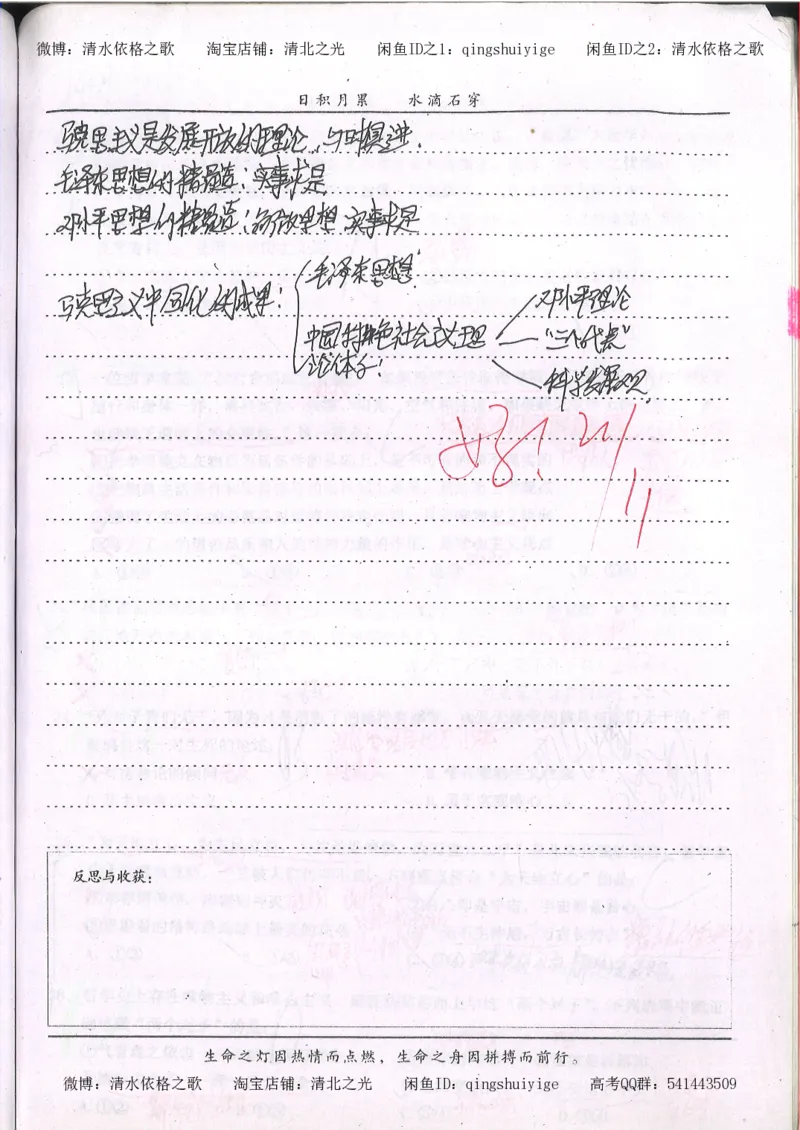 微博：清水依格之歌 淘宝店铺：清北之光 闲鱼ID之1：qingshuiyige 闲鱼ID之2：清水依格之歌
日积月累 水滴石穿
马克思主义是发展开放的理论，与时俱进.
毛泽东思想的精髓：实事求是
邓小平思想的精髓：解放思想 实事求是
马克思主义中国化的成果：
毛泽东思想
中国特色社会主义理
论体系：
邓小平理论
“三个代表”
科学发展观.
好！21/11
反思与收获：
生命之灯因热情而点燃，生命之舟因拼搏而前行。
微博：清水依格之歌 淘宝店铺：清北之光 闲鱼ID：qingshuiyige 高考QQ群：541443509